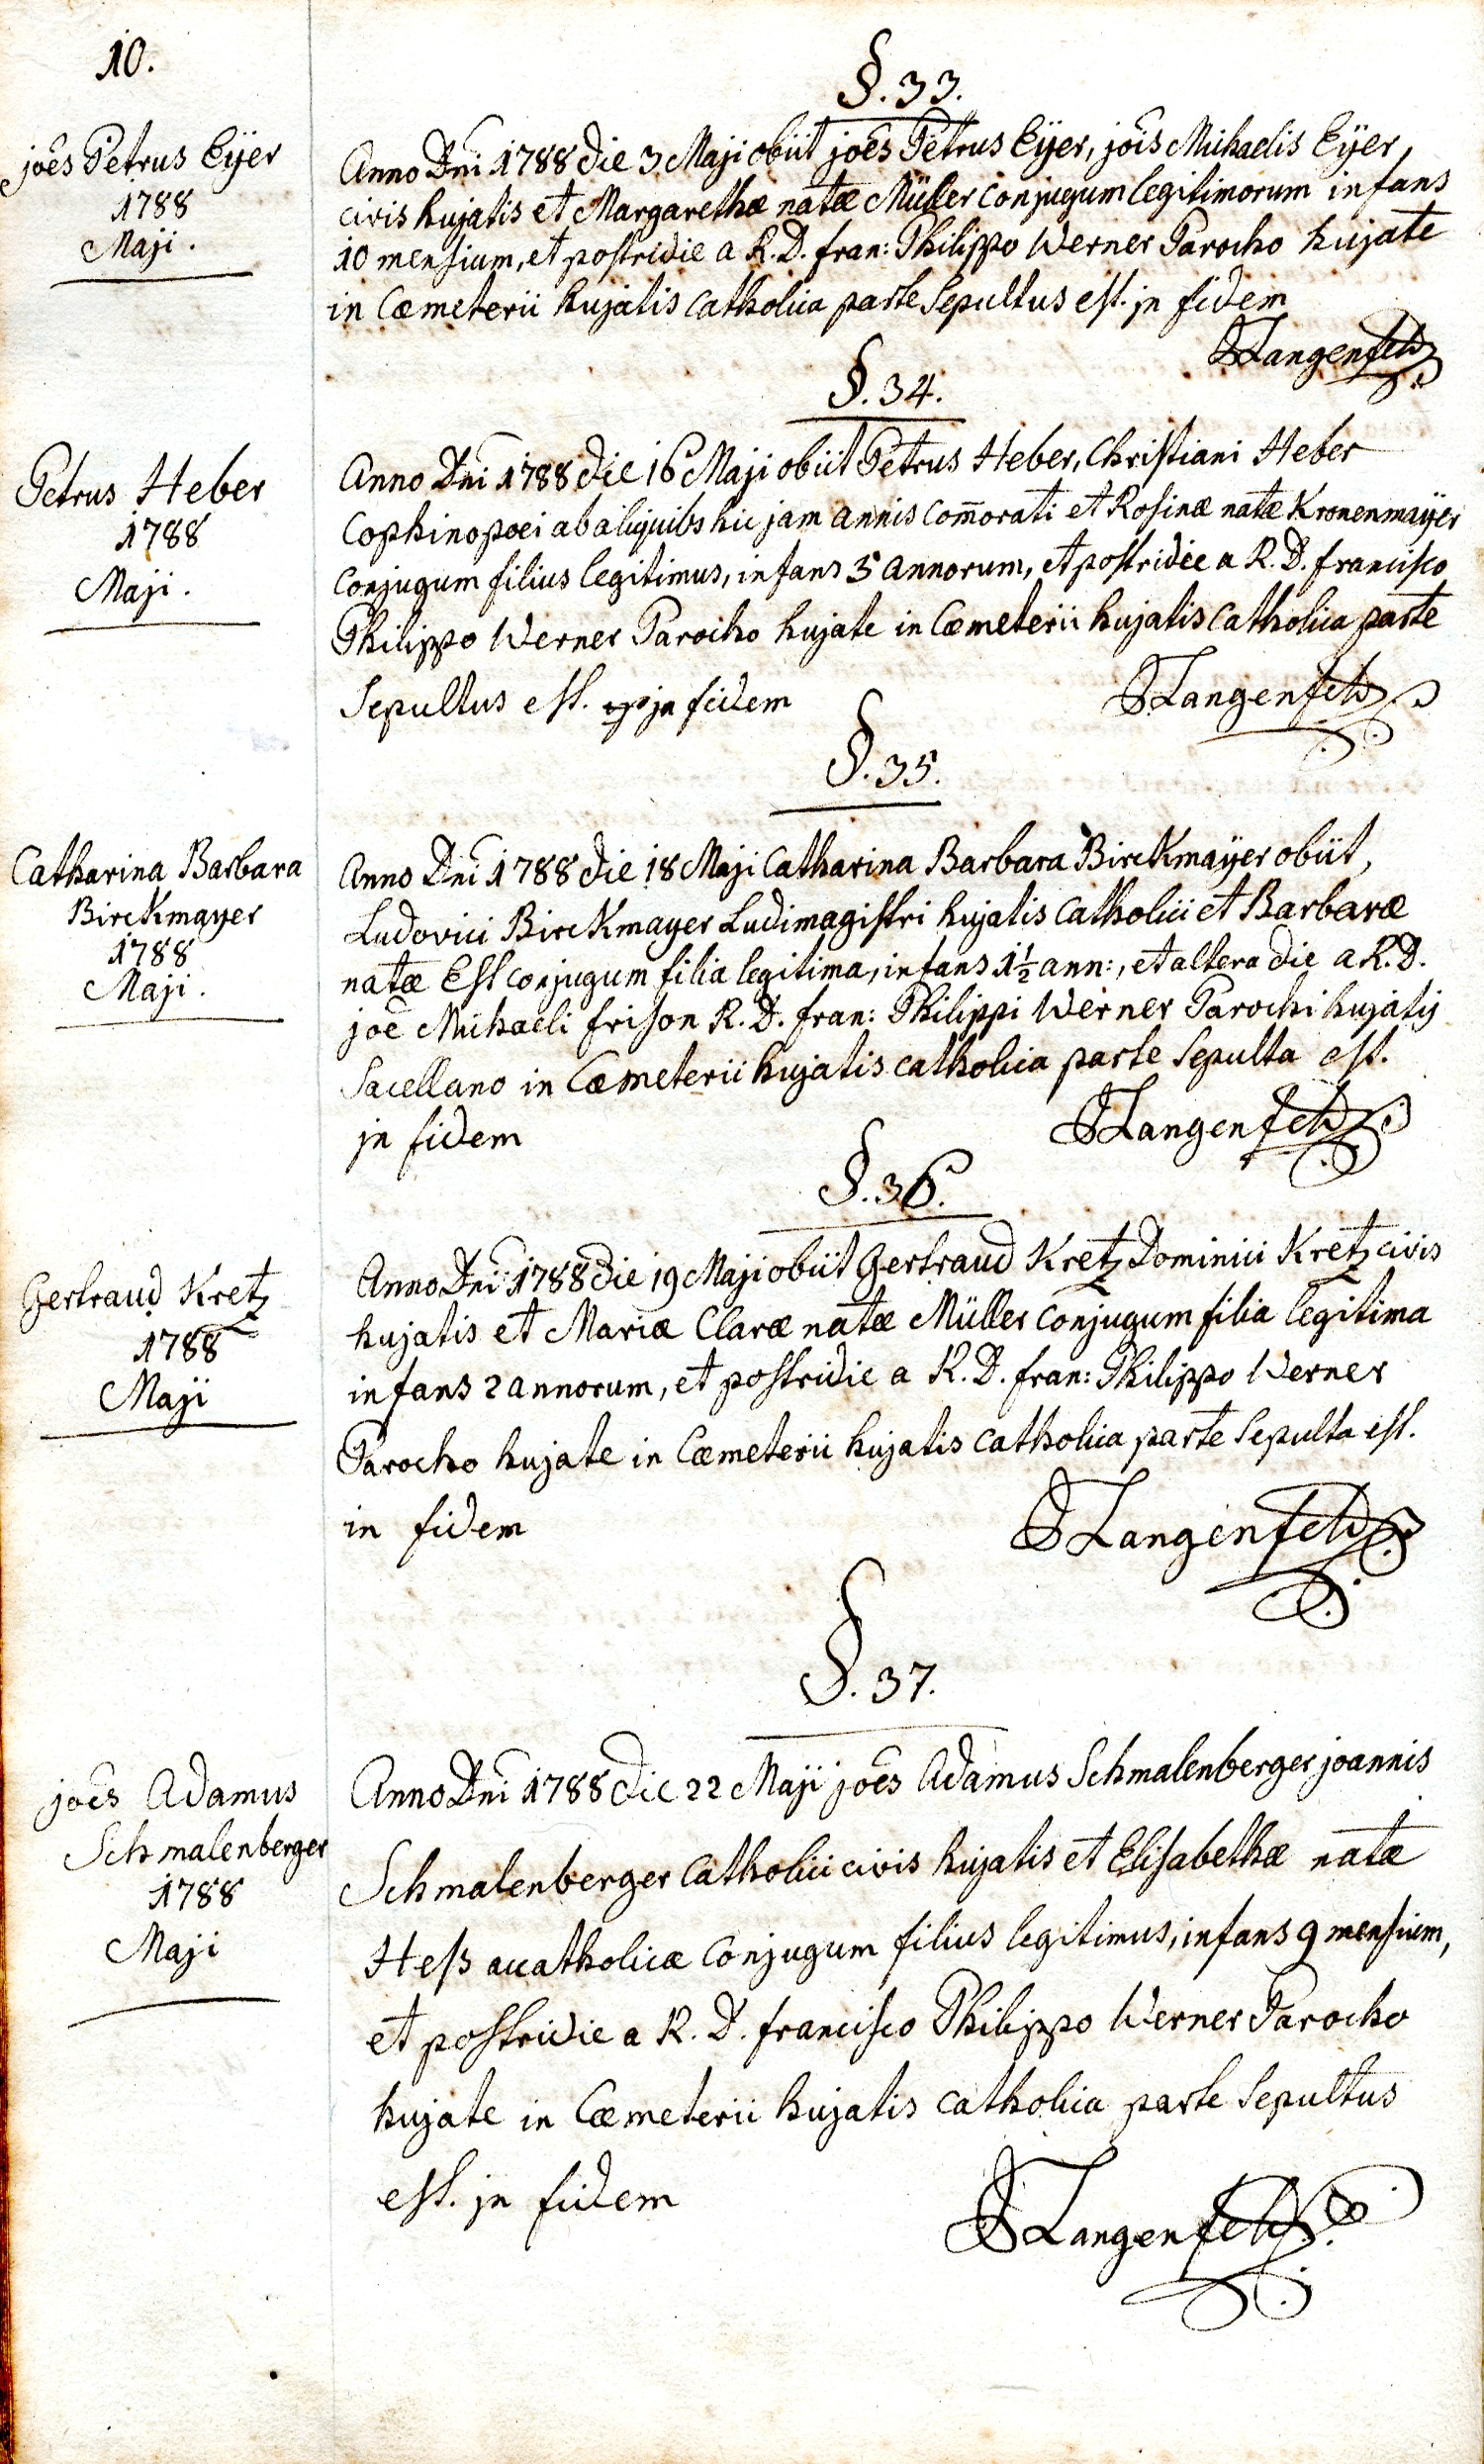 10.
§. 33.
joẽs Petrus Eÿer
1788
Maji.
Anno Dni 1788 die 3 Maji obiit joẽs Petrus Eÿer, jois Michaelis Eÿer,
civis hujatis et Margarethæ natæ Müller conjugum legitimorum infans
10 mensium, et postridie a R. D. fran: Philippo Werner Parocho hujate
in Cœmeterii hujatis catholica parte Sepultus est. jn fidem
Langenfeld
§. 34.
Petrus Heber
1788
Maji.
Anno Dni 1788 die 16 Maji obiit Petrus Heber, Christiani Heber
Cophinopoei ab aliquibs hic jam annis com̅orati et Rosinæ natæ Kronenmaÿer
conjugum filius legitimus, infans 5 annorum, et postridie a R. D. francisco
Philippo Werner Parocho hujate in Cœmeterii hujatis catholica parte
Sepultus est. jn fidem
Langenfeld
§. 35.
Catharina Barbara
Birckmayer
1788
Maji.
Anno Dni 1788 die 18 Maji Catharina Barbara Birckmaÿer obiit,
Ludovici Birckmayer Ludimagistri hujatis catholici et Barbaræ
natæ Est conjugum filia legitima, infans 1½ ann:, et altera die a R. D.
joe Michaeli frison R. D. fran: Philippi Werner Parochi hujatis
Sacellano in Cœmeterii hujatis catholica parte Sepulta est.
jn fidem
Langenfeld
§. 36.
Gertraud Kretz
1788
Maji
Anno Dni 1788 die 19 Maji obiit Gertraud Kretz Dominici Kretz civis
hujatis et Mariæ Claræ natæ Müller conjugum filia legitima
infans 2 annorum, et postridie a R. D. fran: Philippo Werner
Parocho hujate in Cœmeterii hujatis catholica parte Sepulta est.
in fidem
Langenfeld
§. 37.
joẽs Adamus
Schmalenberger
1788
Maji
Anno Dni 1788 die 22 Maji joẽs Adamus Schmalenberger joannis
Schmalenberger Catholici civis hujatis et Elisabethæ natæ
Heß acatholicæ conjugum filius legitimus, infans 9 mensium,
et postridie a R. D. francisco Philippo Werner Parocho
hujate in Cœmeterii hujatis catholica parte Sepultus
est. jn fidem
Langenfeld